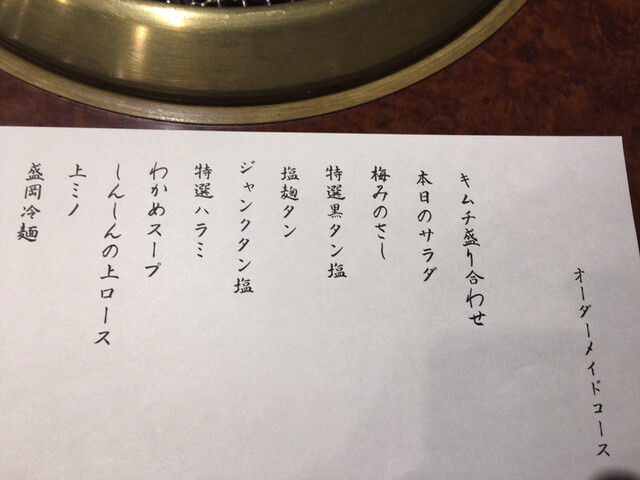 オーダーメイドコース
キムチ盛り合わせ
本日のサラダ
梅みのさし
特選黒タン塩
塩麹タン
ジャンクタン塩
特選ハラミ
わかめスープ
しんしんの上ロース
上ミノ
盛岡冷麺